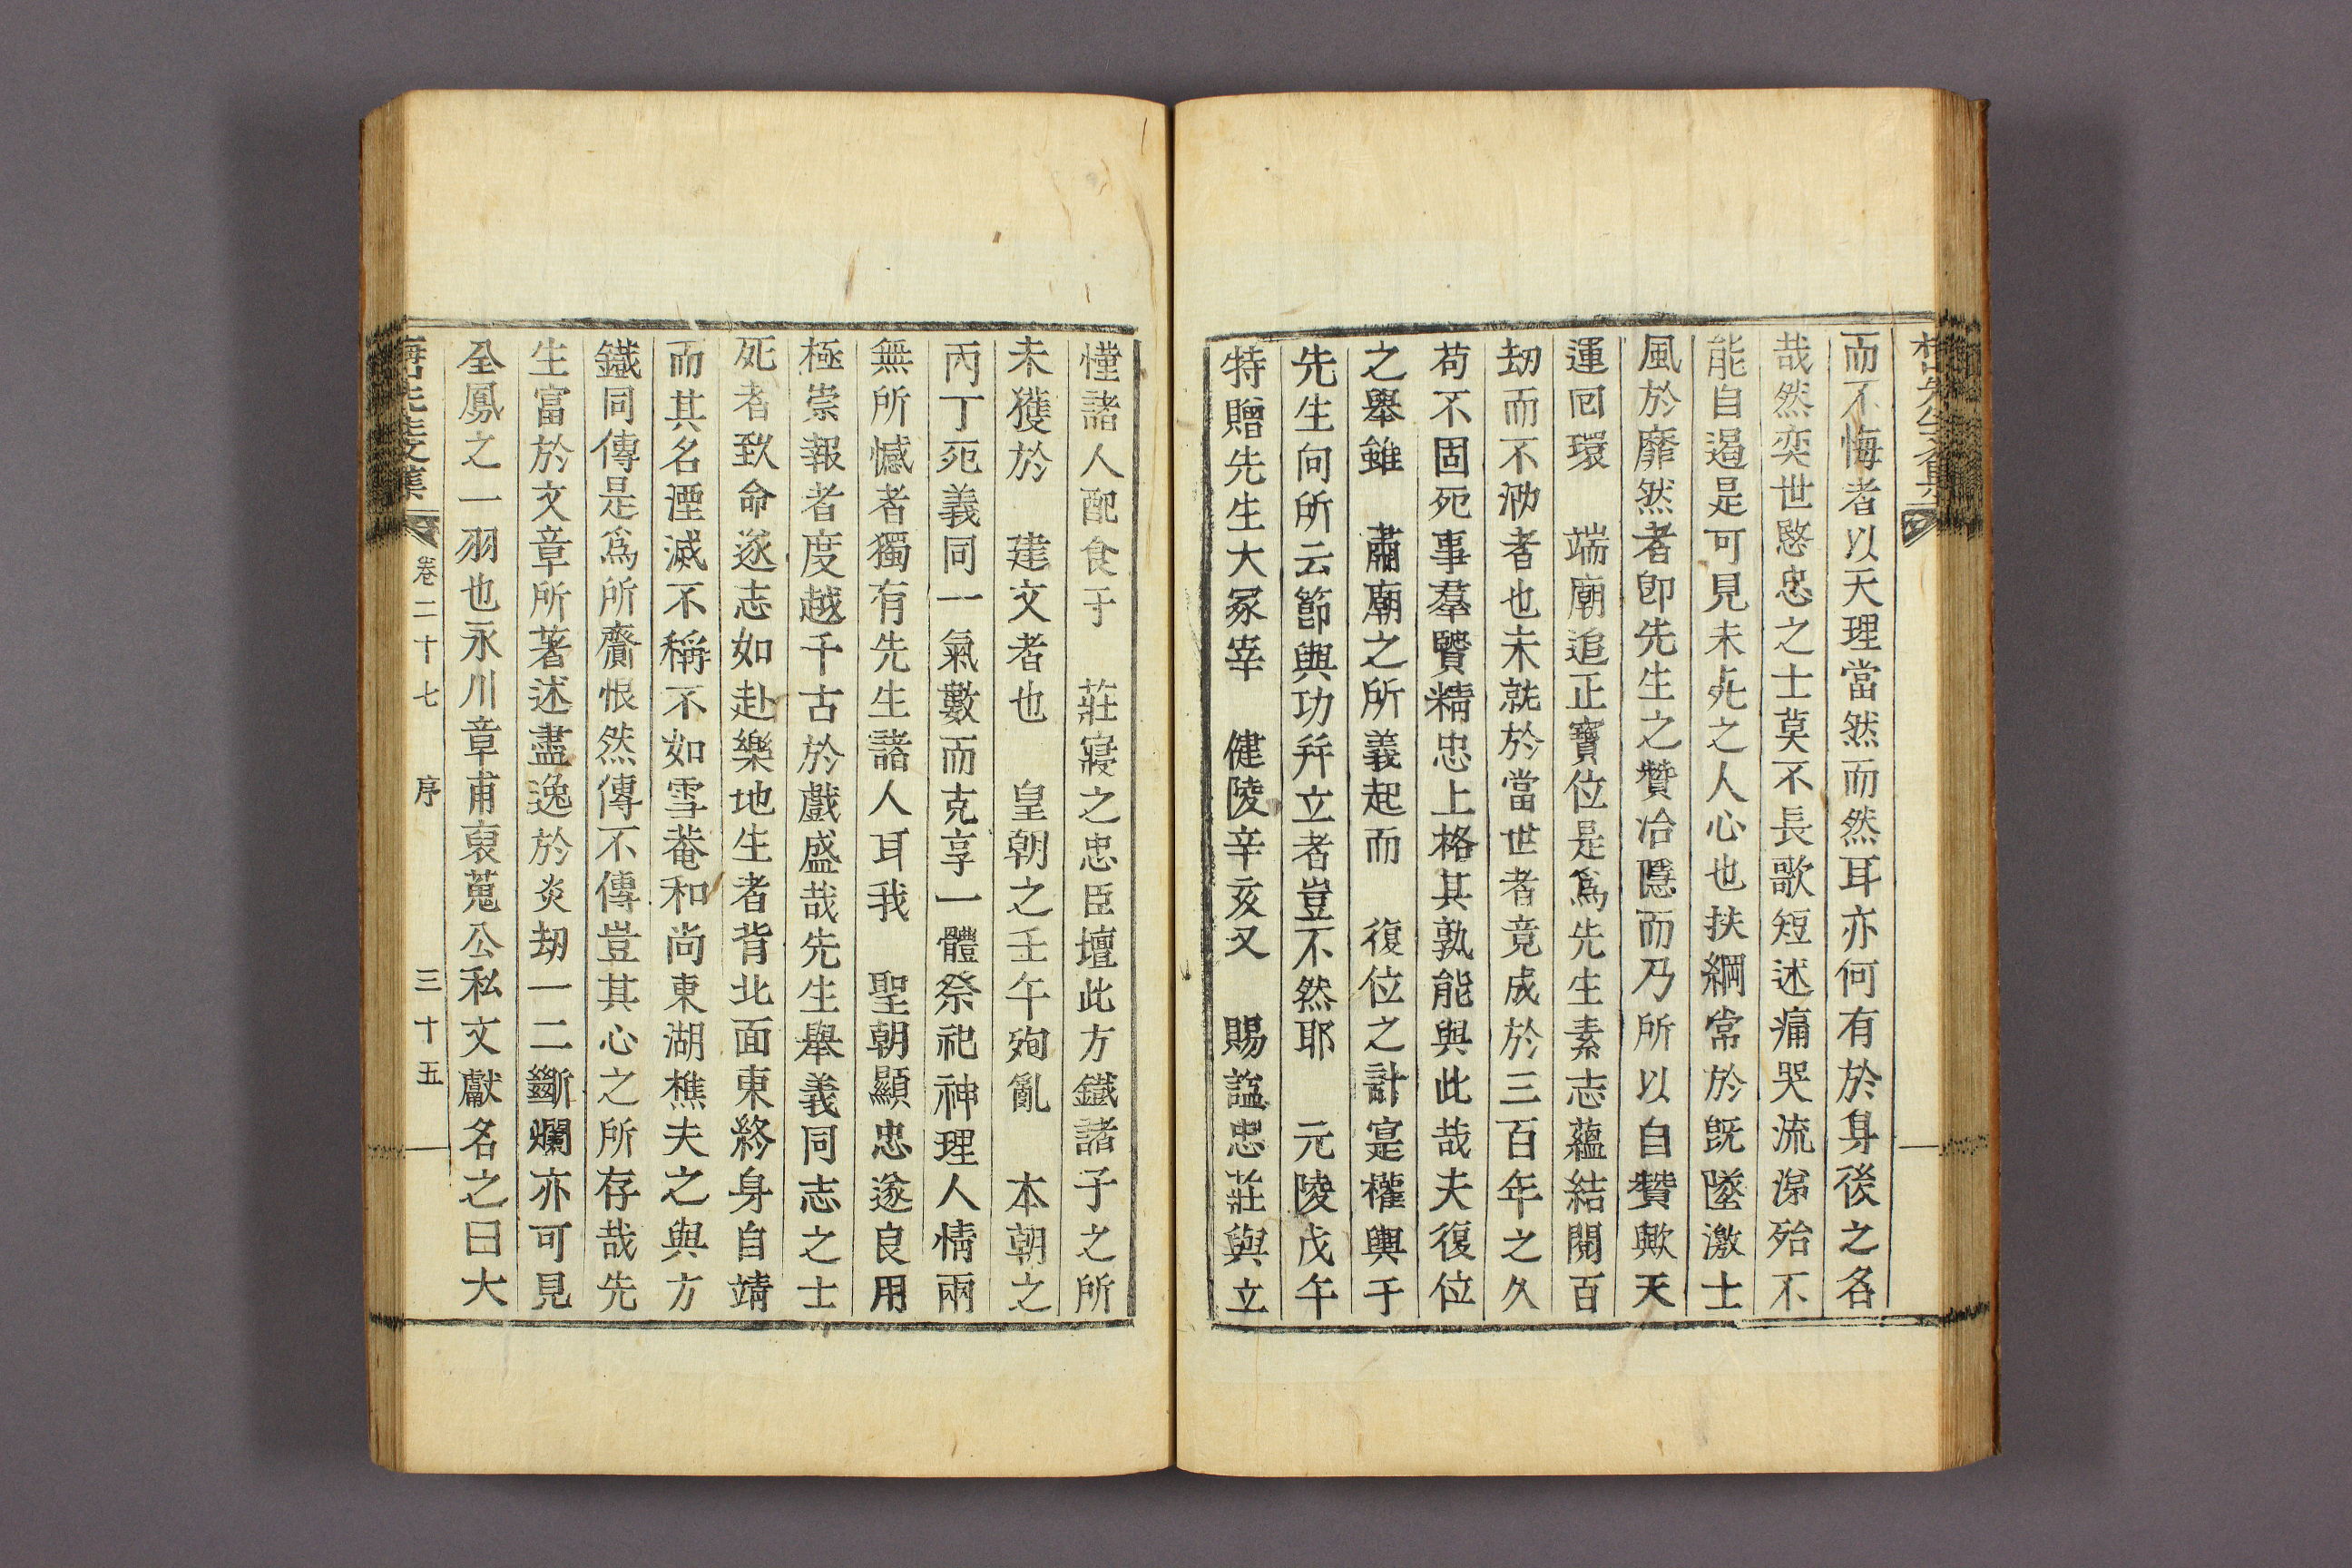 而不悔者以天理當然而然耳亦何有於身後之名
哉然奕世愍忠之士莫不長歌短述痛哭流涕殆不
能自遏是可見未死之人心也扶綱常於旣墜激士
風於靡然者卽先生之贊冶隱而乃所以自贊歟天
運回環　端廟追正寶位是爲先生素志蘊結閱百
劫而不泐者也未就於當世者竟成於三百年之久
苟不固死事羣賢精忠上格其孰能與此哉夫復位
之擧雖　肅廟之所義起而　復位之計寔權輿于
先生向所云節與功幷立者豈不然耶　元陵戊午
特贈先生大冢宰　健陵辛亥又　賜諡忠莊與立
慬諸人配食于　莊寢之忠臣壇此方鐵諸子之所
未獲於　建文者也　皇朝之壬午殉亂　本朝之
丙丁死義同一氣數而克享一體祭祀神理人情兩
無所憾者獨有先生諸人耳我　聖朝顯忠遂良用
極崇報者度越千古於戲盛哉先生擧義同志之士
死者致命遂志如赴樂地生者背北面東終身自靖
而其名湮滅不稱不如雪菴和尙東湖樵夫之與方
鐵同傳是爲所齎恨然傳不傳豈其心之所存哉先
生富於文章所著述盡逸於炎劫一二斷爛亦可見
全鳳之一羽也永川章甫裒蒐公私文獻名之曰大
先生文集　卷二十七　序　三十五